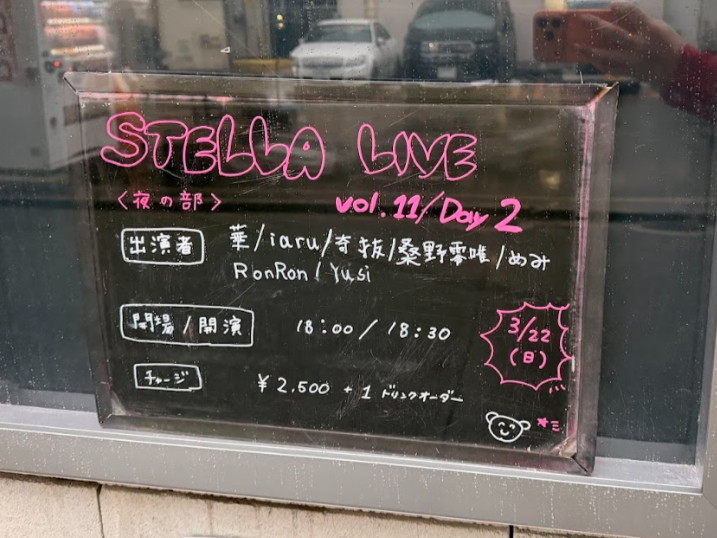 STELLA LIVE
<夜の部>
vol.11/Day 2
出演者
華/iaru/奇抜/桑野零唯/めみ
RonRon/Yusi
開場/開演
18:00/18:30
3/22
(日)
チャージ
¥2.500 + 1 ドリンクオーダー